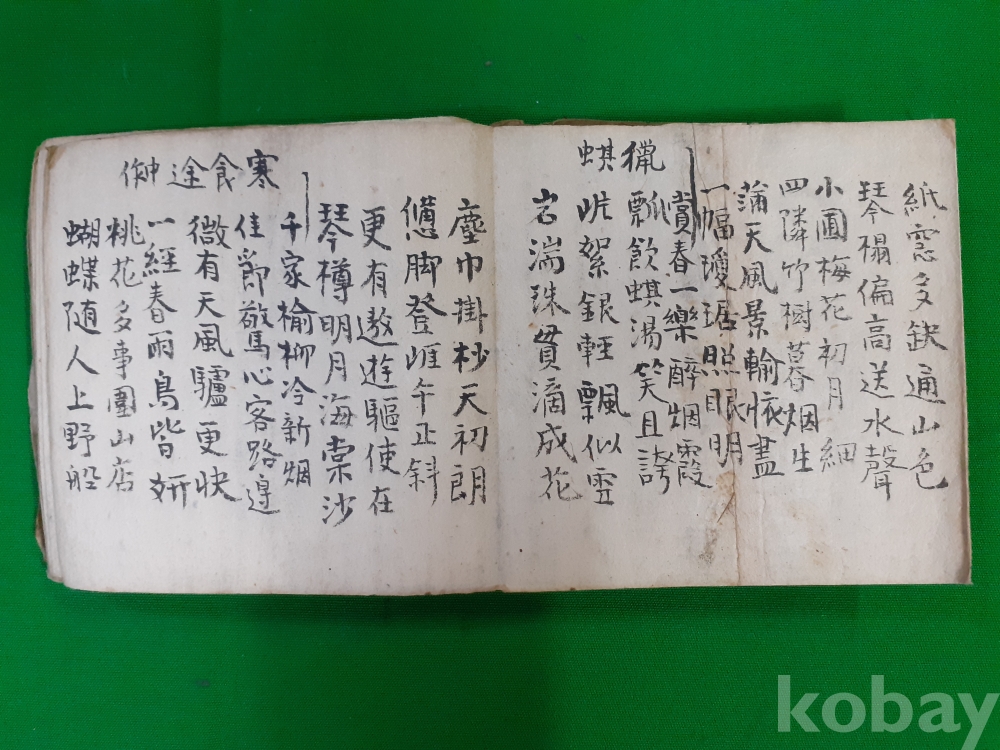 紙窓多缺通山色
琴榻偏高送水聲
小圃梅花初月細
四隣竹樹暮烟生
滿天風景輸恢盡
一幅瓊琚照眼明
賞春一樂醉烟霞
獵蜞
瓢飮蜞湯笑且誇
吹絮銀輕飄似雪
岩湍珠貫滴成花
塵巾掛杪天初朗
憊脚登崕午正斜
更有遨遊驅使在
琴樽明月海棠沙
寒食途中作
千家榆柳冷新烟
佳節驚心客路邊
微有天風驢更快
一經春雨鳥皆姸
桃花多事圍山店
蝴蝶随人上野船
kobay